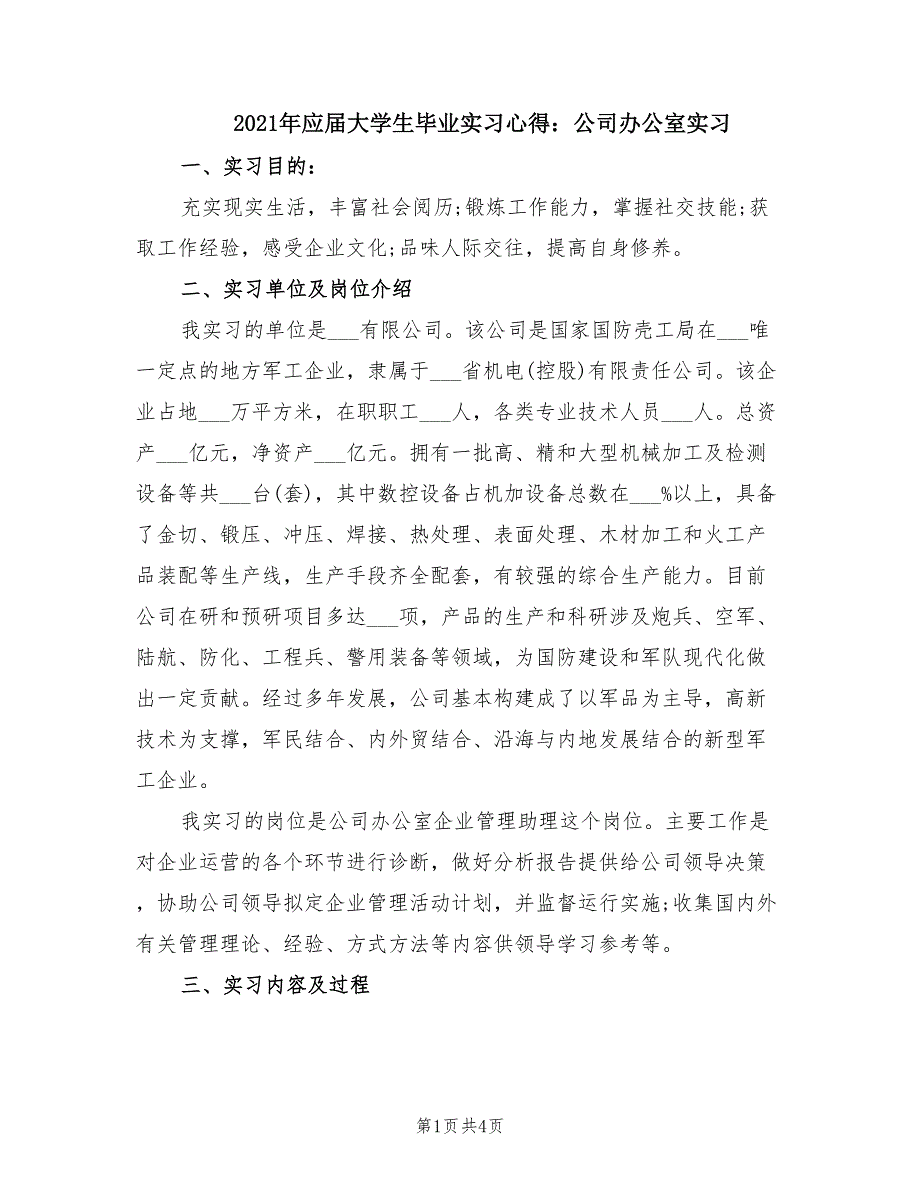 2021年应届大学生毕业实习心得：公司办公室实习
一、实习目的：
充实现实生活，丰富社会阅历;锻炼工作能力，掌握社交技能;获
取工作经验，感受企业文化;品味人际交往，提高自身修养。
二、实习单位及岗位介绍
我实习的单位是___有限公司。该公司是国家国防壳工局在___唯
一定点的地方军工企业，隶属于___省机电(控股)有限责任公司。该企
业占地___万平方米，在职职工___人，各类专业技术人员___人。总资
产___亿元，净资产___亿元。拥有一批高、精和大型机械加工及检测
设备等共___台(套)，其中数控设备占机加设备总数在___%以上，具备
了金切、锻压、冲压、焊接、热处理、表面处理、木材加工和火工产
品装配等生产线，生产手段齐全配套，有较强的综合生产能力。目前
公司在研和预研项目多达___项，产品的生产和科研涉及炮兵、空军、
陆航、防化、工程兵、警用装备等领域，为国防建设和军队现代化做
出一定贡献。经过多年发展，公司基本构建成了以军品为主导，高新
技术为支撑，军民结合、内外贸结合、沿海与内地发展结合的新型军
工企业。
我实习的岗位是公司办公室企业管理助理这个岗位。主要工作是
对企业运营的各个环节进行诊断，做好分析报告提供给公司领导决策
，协助公司领导拟定企业管理活动计划，并监督运行实施;收集国内外
有关管理理论、经验、方式方法等内容供领导学习参考等。
三、实习内容及过程
第1页共4页